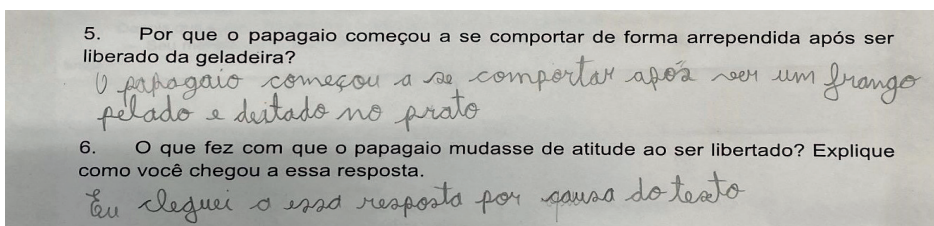 5. Por que o papagaio começou a se comportar de forma arrependida após ser
liberado da geladeira?
O papagaio começou a se comportar apos ver um frango
pelado e deitado no prato
6. O que fez com que o papagaio mudasse de atitude ao ser libertado? Explique
como você chegou a essa resposta.
Eu cleguei a essa resposta por causa do texto